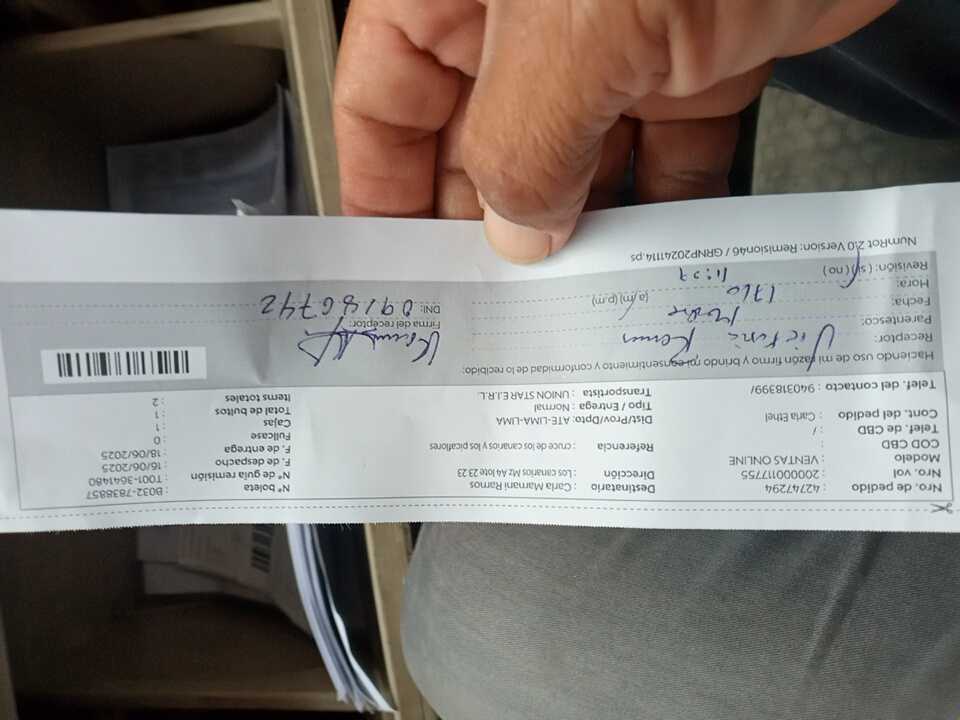 Nro. de pedido : 42747294
Nro. vol : 20000017755
Modelo : VENTAS ONLINE
COD CBD :
Telef. de CBD : /
Cont. del pedido : Carla Ethel
Telef. del contacto : 940318399/
Destinatario : Carla Mamani Ramos
Dirección : Los canarios Mz A4 lote 23 23
Referencia : cruce de los canarios y los picaflores
Dist/Prov/Dpto: ATE-LIMA-LIMA
Tipo / Entrega : Normal
Transportista : UNION STAR E.I.R.L.
N° boleta : B032-7838857
N° de guía remisión : T001-3641480
F. de despacho : 16/06/2025
F. de entrega : 18/06/2025
Fullcase : 0
Cajas : 1
Total de bultos : 1
Items totales : 2
Haciendo uso de mi razón firmo y brindo mi consentimiento y conformidad de lo recibido:
Receptor: Victoria Ramos
Parentesco: Madre
Fecha:
Hora: 11:27 (a/m) (p.m)
Revisión: (si) (no)
Firma del receptor:
DNI: 09186742
NumRot 2.0 Version: Remision46 / GRNP20241114.ps